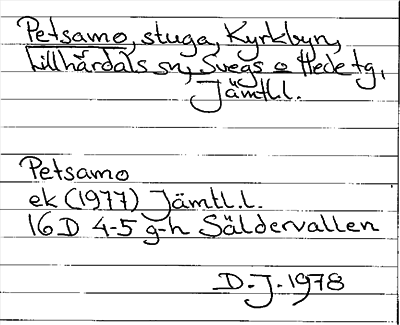 Petsamo, stuga, Kyrkbyn,
Lillhärdals sn, Svegs o Hede tg,
Jämtl.l.
Petsamo
ek (1977) Jämtl.l.
16D 4-5 g-h Säldervallen
D.J. 1978